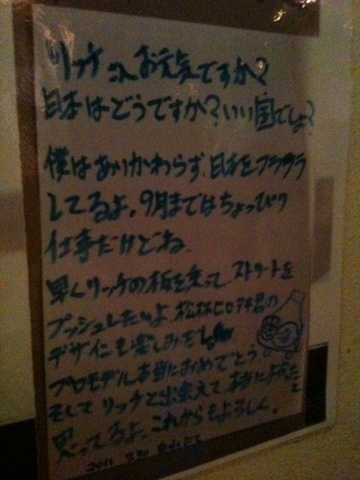 リッチさんお元気ですか?
日本はどうですか?いい国でしょ?
僕はあいかわらず、日本をフラフラ
してるよ。9月まではちょっぴり
仕事だけどね
早くリッチの板を乗って ストリートを
プッシュしたいよ 松林ヒロアキ君の
デザインも楽しみだし
プロモデル本当におめでとう
そして リッチと出会えて 本当によかったと
思ってるよ。これからもよろしく。
2011 7.20